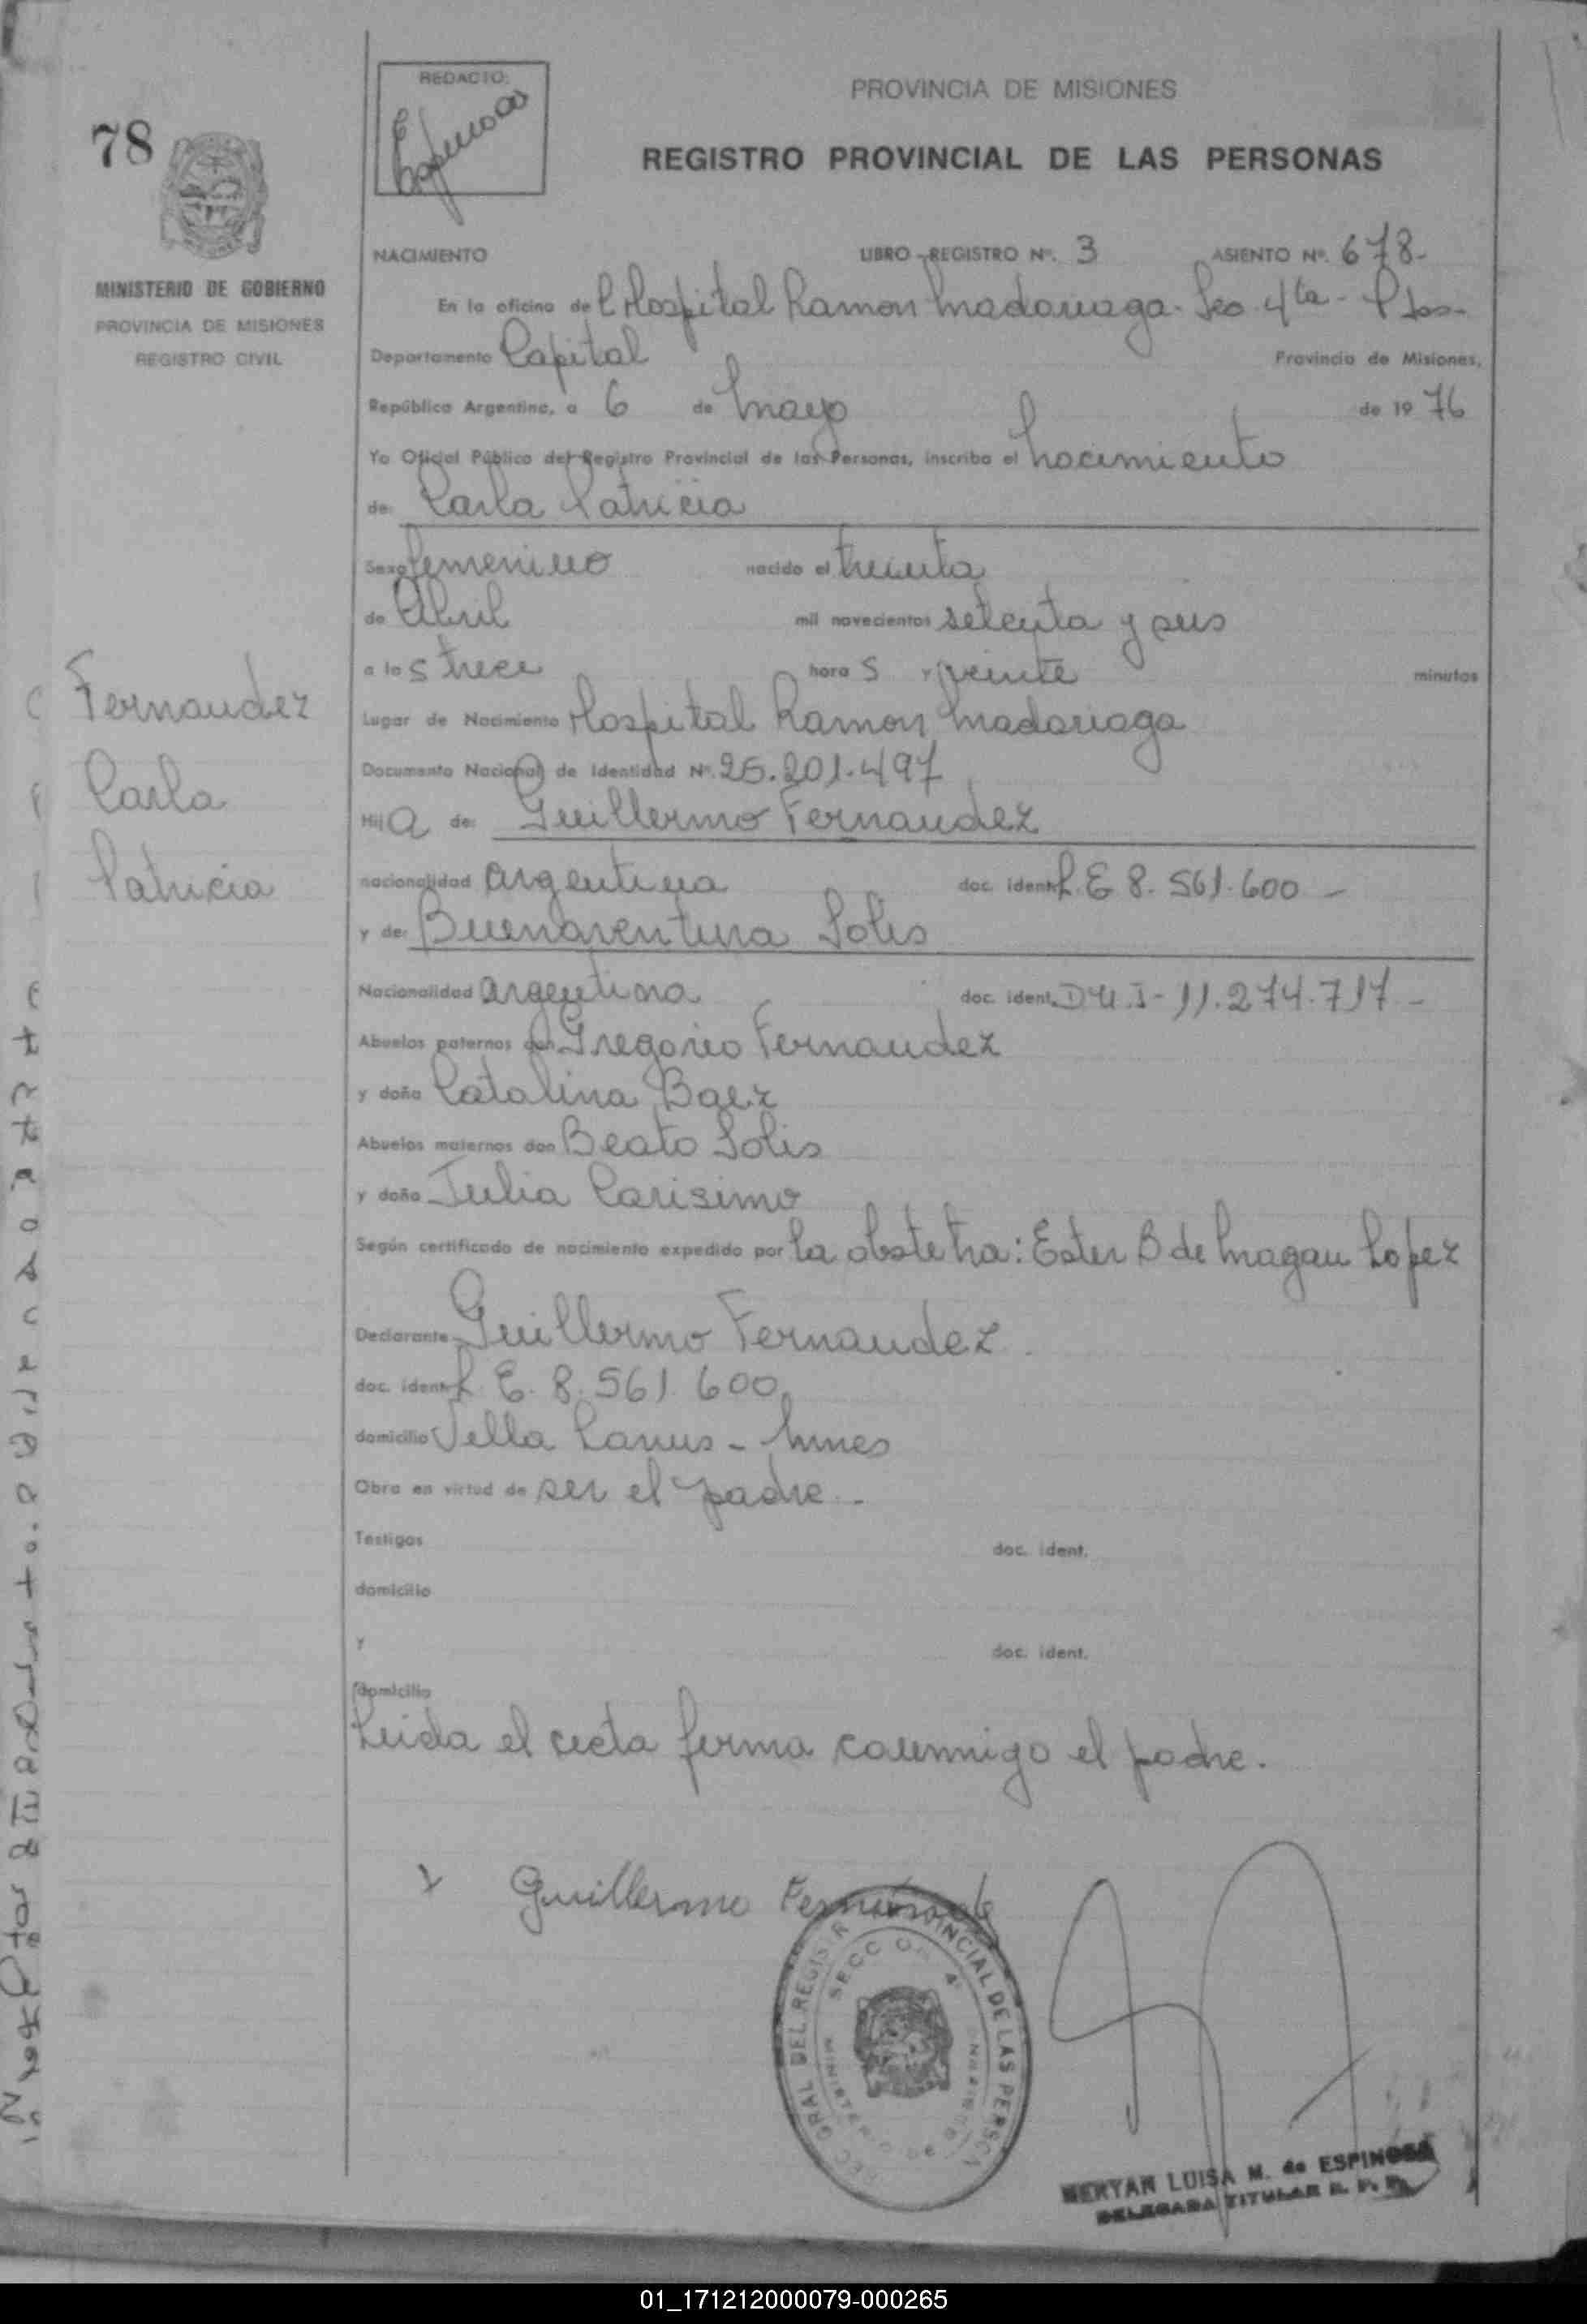 REDACTO:
Espinosa
78
MINISTERIO DE GOBIERNO
PROVINCIA DE MISIONES
REGISTRO CIVIL
PROVINCIA DE MISIONES
REGISTRO PROVINCIAL DE LAS PERSONAS
NACIMIENTO LIBRO - REGISTRO Nº. 3 ASIENTO Nº. 678-
En la oficina del Hospital Ramon Madariaga - Sec 4ta - Pdas-
Departamento Capital Provincia de Misiones,
República Argentina, a 6 de Mayo de 19 76
Yo Oficial Público del Registro Provincial de las Personas, inscribo el nacimiento
de: Carla Patricia
Sexo femenino nacido el treinta
de Abril mil novecientos setenta y seis
a las trece horas y veinte minutos
Lugar de Nacimiento Hospital Ramon Madariaga
Documento Nacional de Identidad Nº. 25.201.497
Hija de: Guillermo Fernandez
nacionalidad argentina doc. ident. L.E 8.561.600 -
y de: Buenaventura Solis
Nacionalidad argentina doc. ident. D.N.I - 11.274.717 -
Abuelos paternos don Gregorio Fernandez
y doña Catalina Baez
Abuelos maternos don Beato Solis
y doña Julia Carisimo
Según certificado de nacimiento expedido por la obstetra: Ester B de Magan Lopez
Declarante Guillermo Fernandez.
doc. ident. L.E. 8.561.600
domicilio Villa Lanus - Mnes
Obra en virtud de ser el padre -
Testigos doc. ident.
domicilio
y doc. ident.
domicilio
Leida el acta firma conmigo el padre.
Fernandez
Carla
Patricia
Guillermo Fernandez
SECCION 4ª
MERYAN LUISA M. de ESPINOSA
DELEGADA TITULAR R. P. P.
01_171212000079-000265